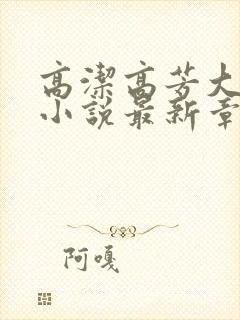 高潔高芳大
小說最新章
阿嘎